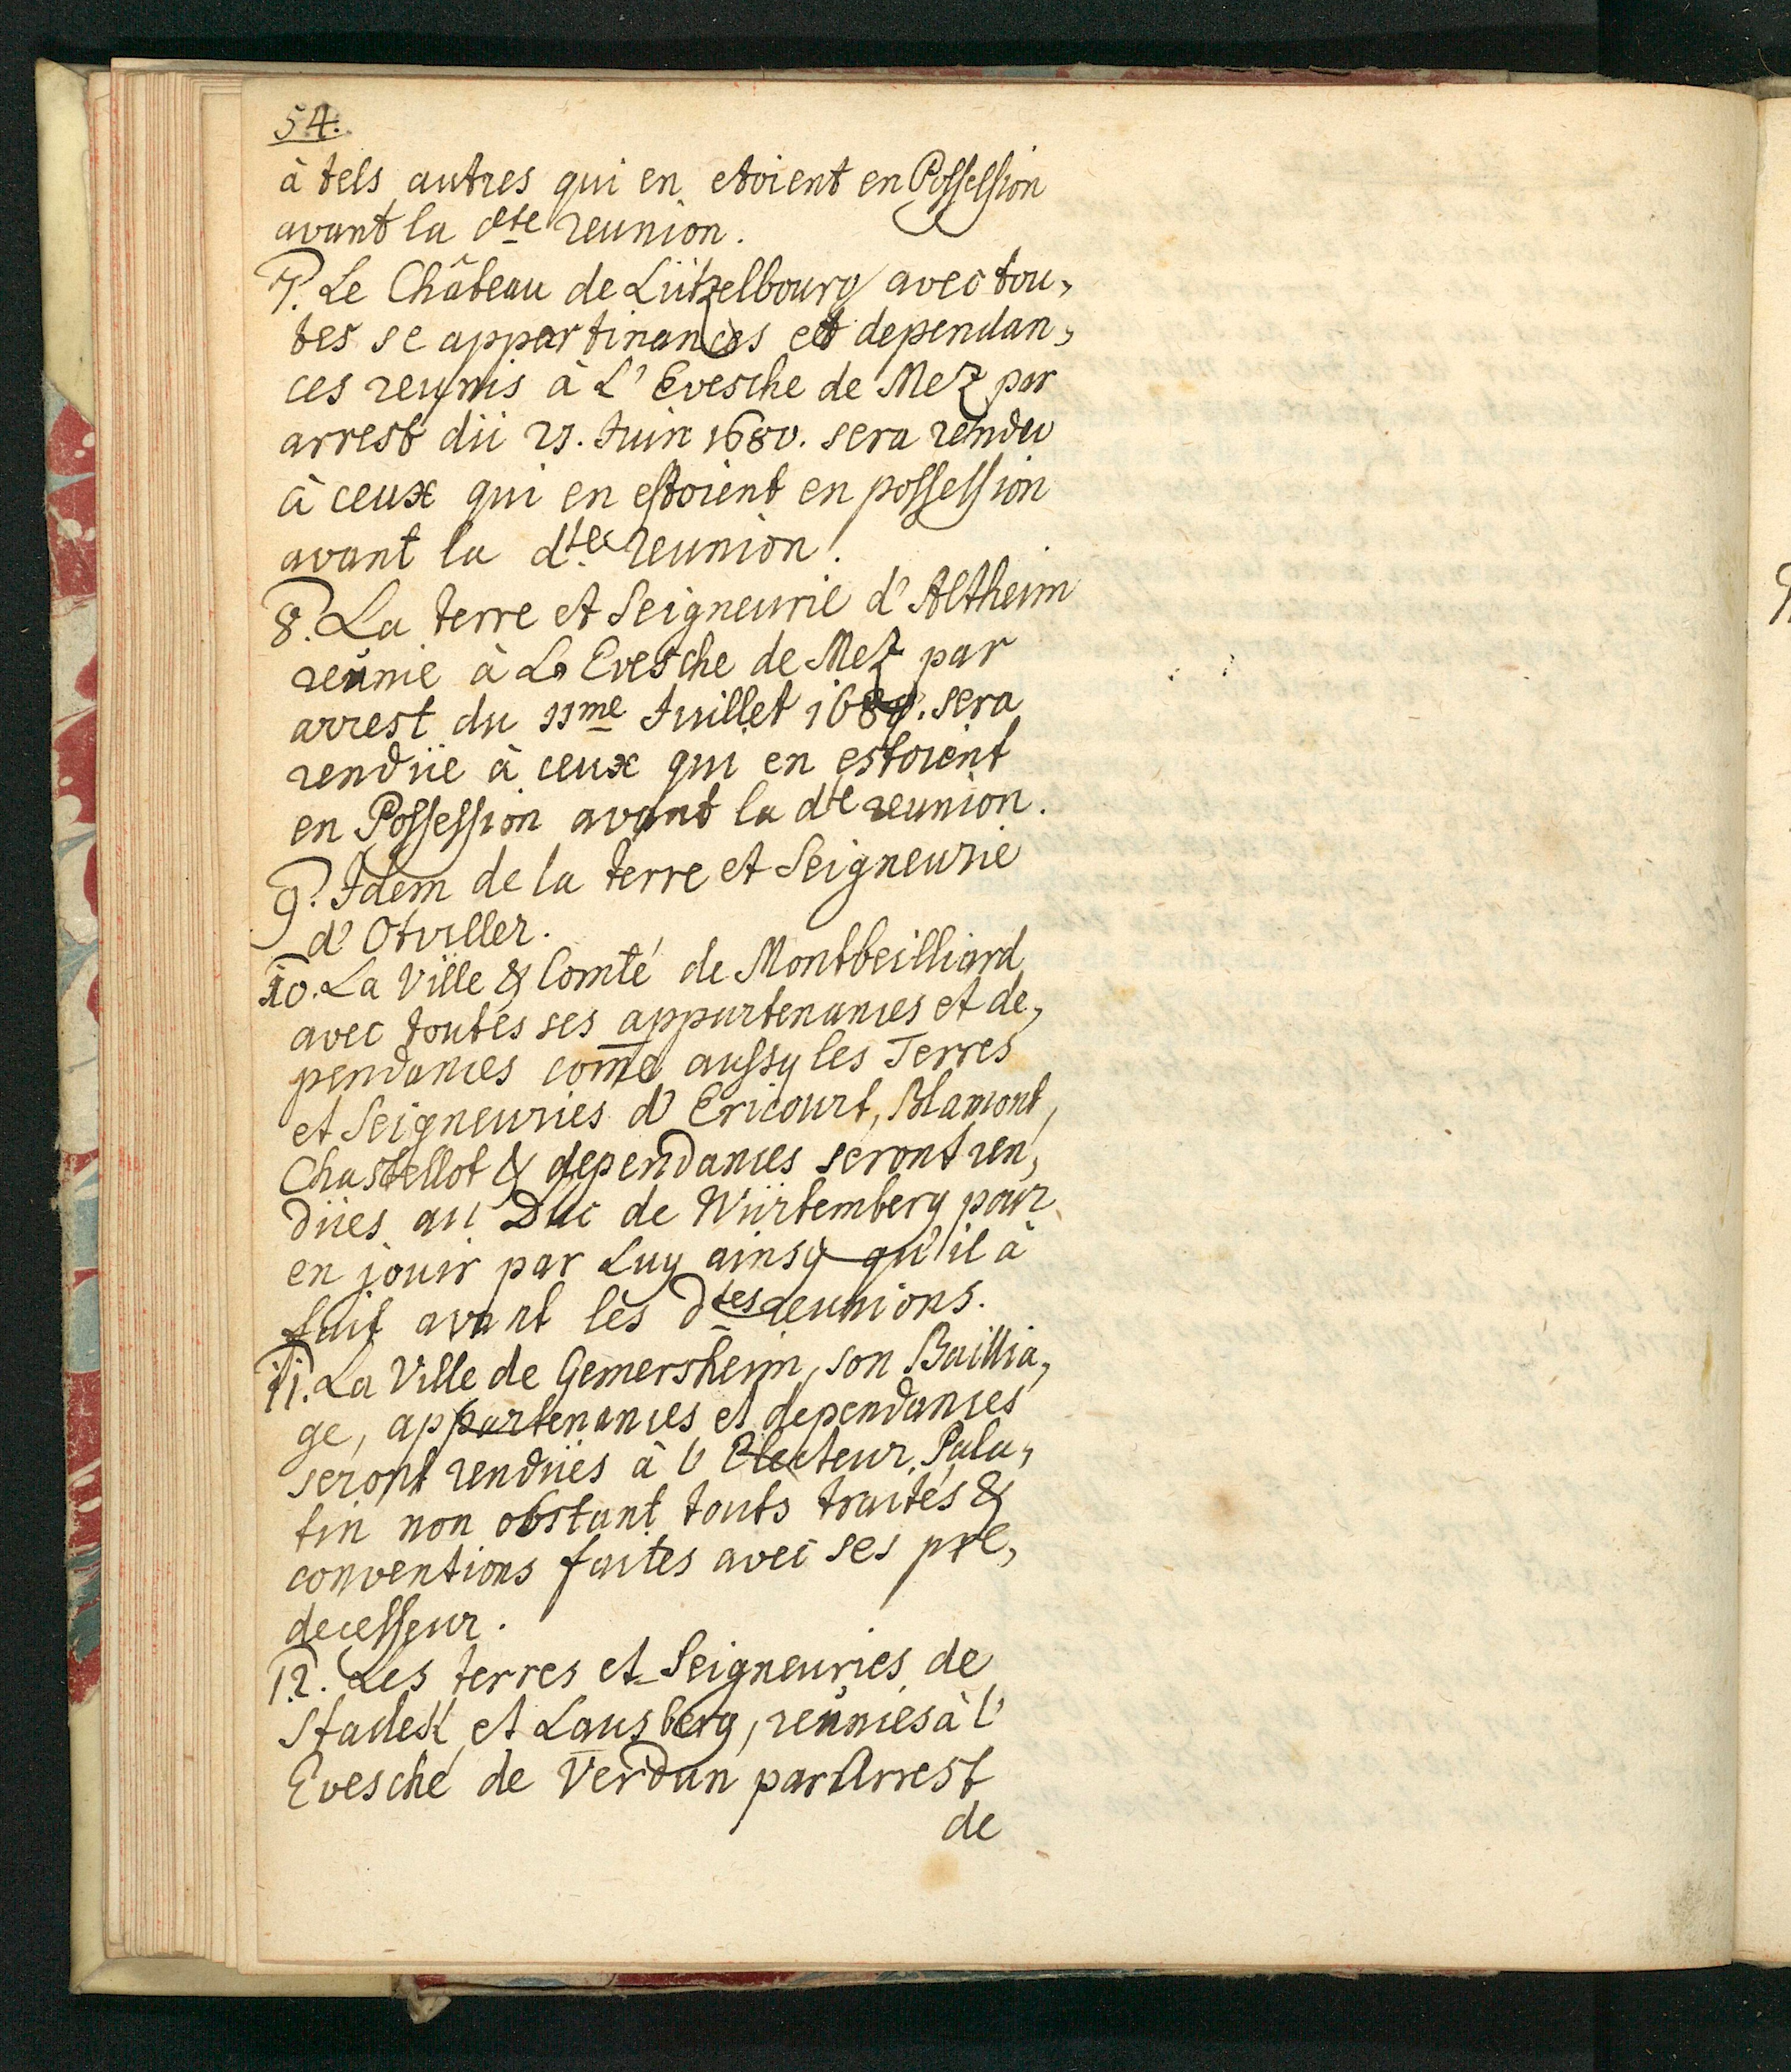 54.
à tels autres qui en etoient en Possession
avant la dte reunion.
7. Le Château de Lützelbourg avec tou„
tes se appartinances et dependan„
ces reunis à L' Evesche de Mez par
arrest dü 27. Juin 1680. sera rendu
à ceux qui en estoient en possession
avant la dte reunion.
8. La terre et Seigneurie d' Altheim
reŭnie à L' Evesche de Mez par
arrest du 11me Juillet 1680. sera
rendüe à ceux qui en estoient
en Possession avant la dte reunion.
9. Idem de la terre et Seigneurie
d' Otviller.
10. La Ville & Comté de Montbeilliard
avec toutes ses appartenances et de„
pendances comē aussy les Terres
et Seigneuries d' Ericourt, Blamont,
Chastellot & dependances seront ren„
dües au Duc de Würtemberg pour
en jouir par Luy ainsy qu'il à
fait avant les dtes reunions.
11. La Ville de Gemersheim, son Baillia„
ge, appartenances et dependances
seront rendües à l' Electeur Pala„
tin non obstant touts traités &
conventions faites avec ses pre„
decesseur.
12. Les terres et Seigneuries de
Stadek et Lansberg, reŭnies à l'
Evesché de Verdun par Arrest
de